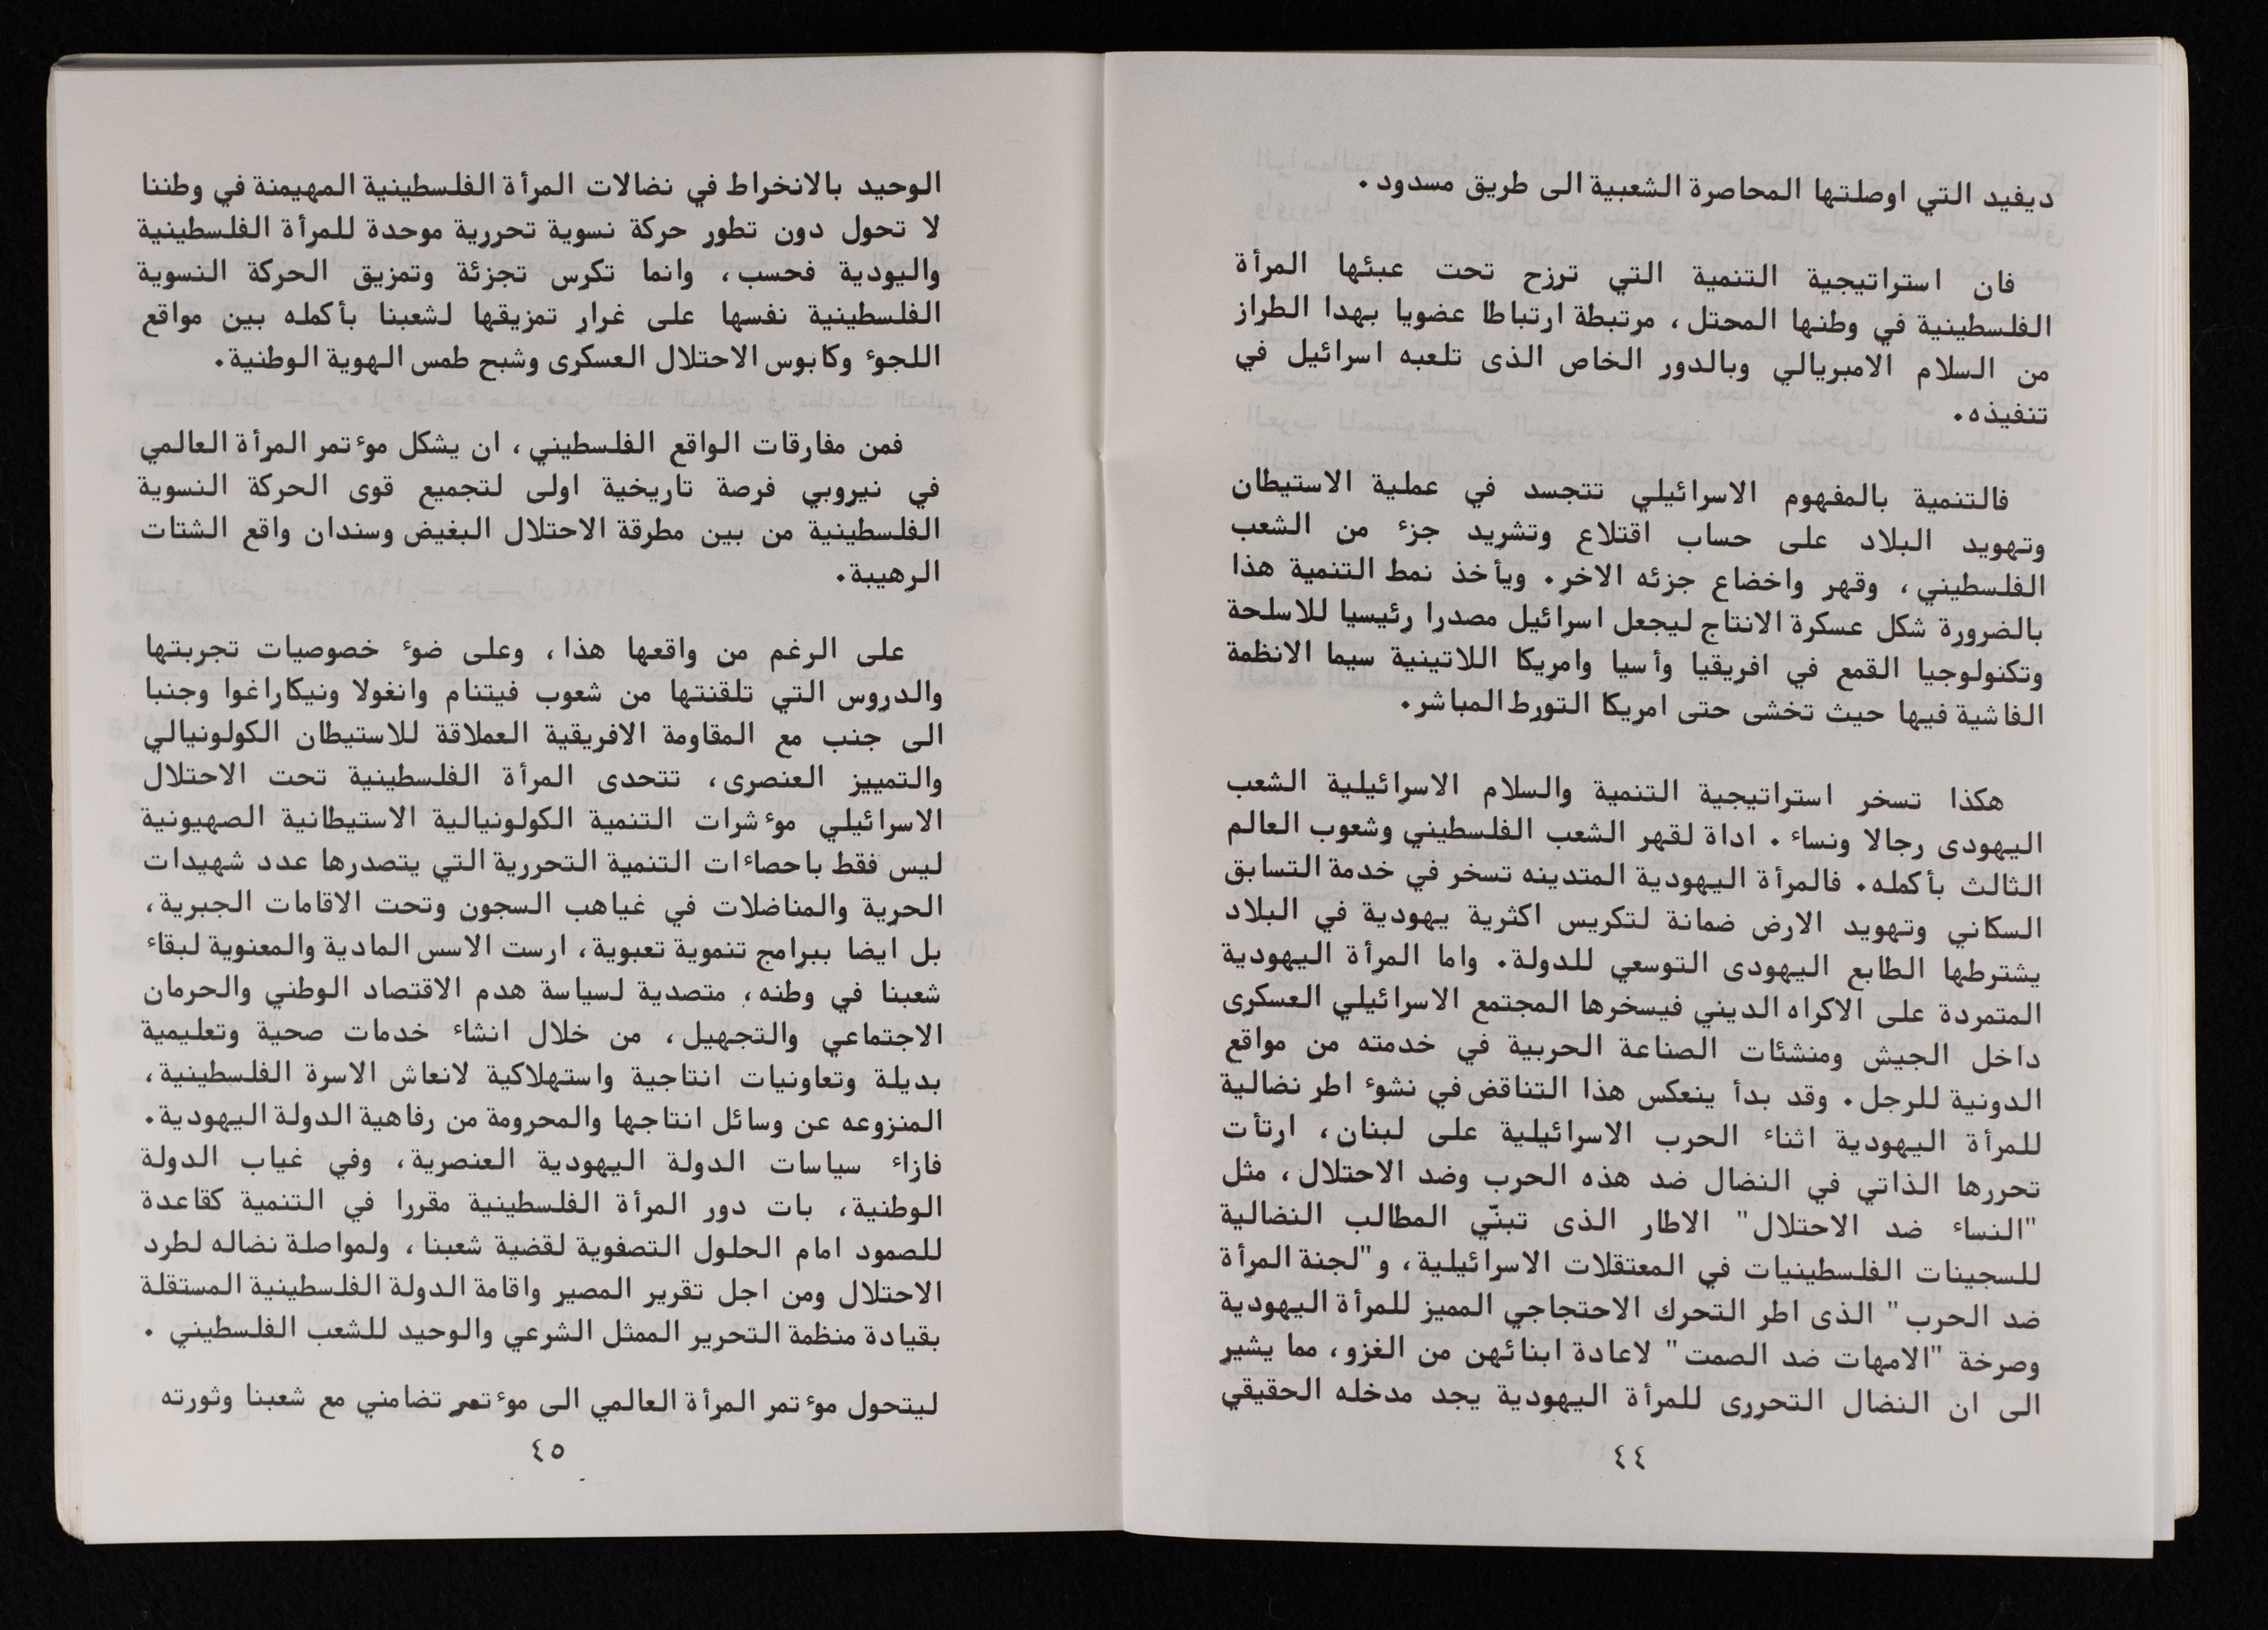 ديفيد التي اوصلتها المحاصرة الشعبية الى طريق مسدود.
فان استراتيجية التنمية التي ترزح تحت عبئها المرأة
الفلسطينية في وطنها المحتل، مرتبطة ارتباطا عضويا بهدا الطراز
من السلام الامبريالي وبالدور الخاص الذى تلعبه اسرائيل في
تنفيذه.
فالتنمية بالمفهوم الاسرائيلي تتجسد في عملية الاستيطان
وتهويد البلاد على حساب اقتلاع وتشريد جزء من الشعب
الفلسطيني، وقهر واخضاع جزئه الاخر. ويأخذ نمط التنمية هذا
بالضرورة شكل عسكرة الانتاج ليجعل اسرائيل مصدرا رئيسيا للاسلحة
وتكنولوجيا القمع في افريقيا وأسيا وامريكا اللاتينية سيما الانظمة
الفاشية فيها حيث تخشى حتى امريكا التورط المباشر.
هكذا تسخر استراتيجية التنمية والسلام الاسرائيلية الشعب
اليهودى رجالا ونساء . اداة لقهر الشعب الفلسطيني وشعوب العالم
الثالث بأكمله. فالمرأة اليهودية المتدينه تسخر في خدمة التسابق
السكاني وتهويد الارض ضمانة لتكريس اكثرية يهودية في البلاد
يشترطها الطابع اليهودى التوسعي للدولة. واما المرأة اليهودية
المتمردة على الاكراه الديني فيسخرها المجتمع الاسرائيلي العسكرى
داخل الجيش ومنشئات الصناعة الحربية في خدمته من مواقع
الدونية للرجل. وقد بدأ ينعكس هذا التناقض في نشوء اطر نضالية
للمرأة اليهودية اثناء الحرب الاسرائيلية على لبنان، ارتأت
تحررها الذاتي في النضال ضد هذه الحرب وضد الاحتلال، مثل
"النساء ضد الاحتلال" الاطار الذى تبنّي المطالب النضالية
للسجينات الفلسطينيات في المعتقلات الاسرائيلية، و"لجنة المرأة
ضد الحرب" الذى اطر التحرك الاحتجاجي المميز للمرأة اليهودية
وصرخة "الامهات ضد الصمت" لاعادة ابنائهن من الغزو، مما يشير
الى ان النضال التحررى للمرأة اليهودية يجد مدخله الحقيقي
٤٤
الوحيد بالانخراط في نضالات المرأة الفلسطينية المهيمنة في وطننا
لا تحول دون تطور حركة نسوية تحررية موحدة للمرأة الفلسطينية
واليودية فحسب، وانما تكرس تجزئة وتمزيق الحركة النسوية
الفلسطينية نفسها على غرار تمزيقها لشعبنا بأكمله بين مواقع
اللجوء وكابوس الاحتلال العسكرى وشبح طمس الهوية الوطنية.
فمن مفارقات الواقع الفلسطيني، ان يشكل موءتمر المرأة العالمي
في نيروبي فرصة تاريخية اولى لتجميع قوى الحركة النسوية
الفلسطينية من بين مطرقة الاحتلال البغيض وسندان واقع الشتات
الرهيبة.
على الرغم من واقعها هذا، وعلى ضوء خصوصيات تجربتها
والدروس التي تلقنتها من شعوب فيتنام وانغولا ونيكاراغوا وجنبا
الى جنب مع المقاومة الافريقية العملاقة للاستيطان الكولونيالي
والتمييز العنصرى، تتحدى المرأة الفلسطينية تحت الاحتلال
الاسرائيلي موءشرات التنمية الكولونيالية الاستيطانية الصهيونية
ليس فقط باحصاءات التنمية التحررية التي يتصدرها عدد شهيدات
الحرية والمناضلات في غياهب السجون وتحت الاقامات الجبرية،
بل ايضا ببرامج تنموية تعبوية، ارست الاسس المادية والمعنوية لبقاء
شعبنا في وطنه، متصدية لسياسة هدم الاقتصاد الوطني والحرمان
الاجتماعي والتجهيل، من خلال انشاء خدمات صحية وتعليمية
بديلة وتعاونيات انتاجية واستهلاكية لانعاش الاسرة الفلسطينية،
المنزوعه عن وسائل انتاجها والمحرومة من رفاهية الدولة اليهودية.
فازاء سياسات الدولة اليهودية العنصرية، وفي غياب الدولة
الوطنية، بات دور المرأة الفلسطينية مقررا في التنمية كقاعدة
للصمود امام الحلول التصفوية لقضية شعبنا، ولمواصلة نضاله لطرد
الاحتلال ومن اجل تقرير المصير واقامة الدولة الفلسطينية المستقلة
بقيادة منظمة التحرير الممثل الشرعي والوحيد للشعب الفلسطيني .
ليتحول موءتمر المرأة العالمي الى موءتمر تضامني مع شعبنا وثورته
٤٥